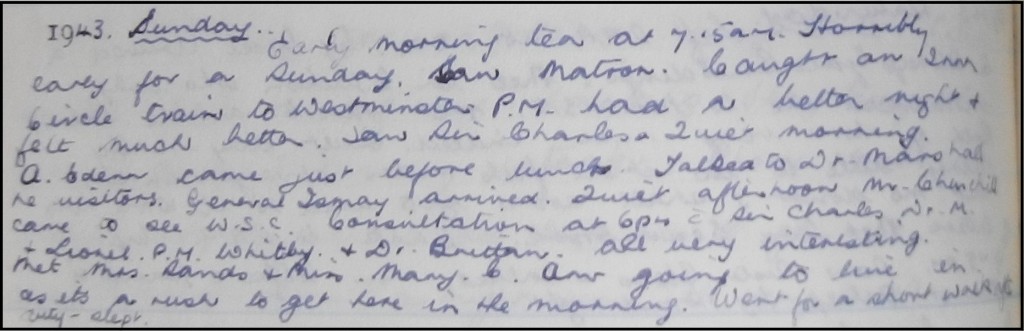 1943. Sunday... Early morning tea at 7.15am. Horribly
early for a Sunday. Saw Matron. Caught an Inn
Circle train to Westminster. P.M. had a better night +
felt much better. Saw Sir Charles. Quiet morning.
A. Eden came just before lunch. Talked to Dr. Marshall
re visitors. General Ismay arrived. Quiet afternoon Mr. Churchill
came to see W.S.C. Consultation at 6pm c̄ Sir Charles, Dr. M.
+ Lionel. P.M. Whitby. + Dr. Brittan. All very interesting.
Met Mrs. Sands + Miss. Mary. C. Am going to live in
as its a rush to get here in the morning. Went for a short walk off
duty - slept.